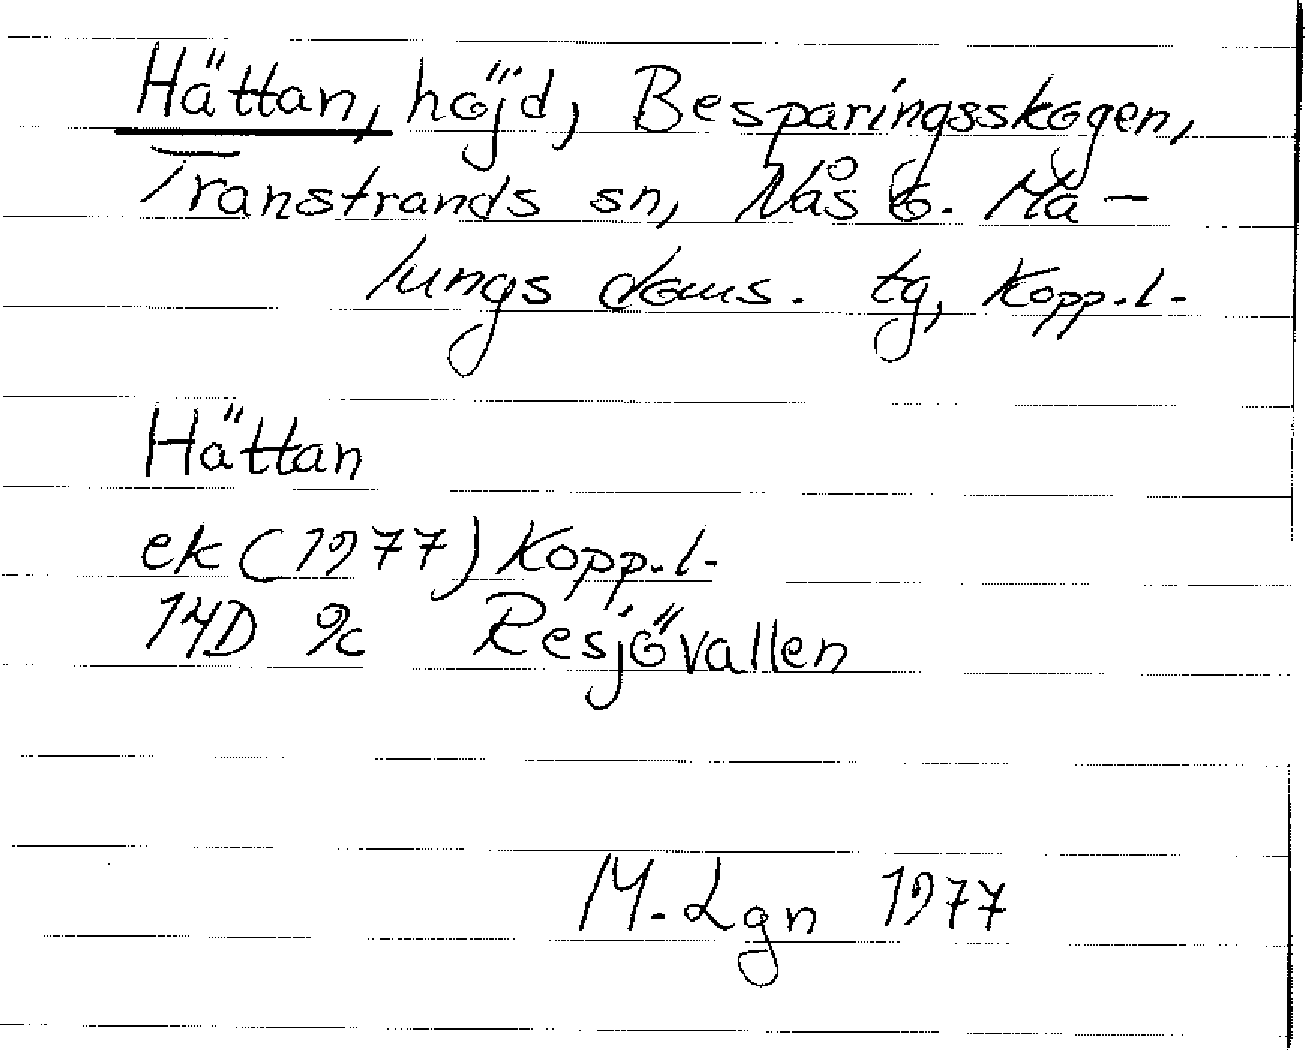 Hättan, höjd, Besparingsskogen,
Transtrands sn, Nås o. Ma-
lungs doms. tg, Kopp.l.
Hättan
ek (1977) Kopp.l.
14D 9c Resjövallen
M. Lgn 1977